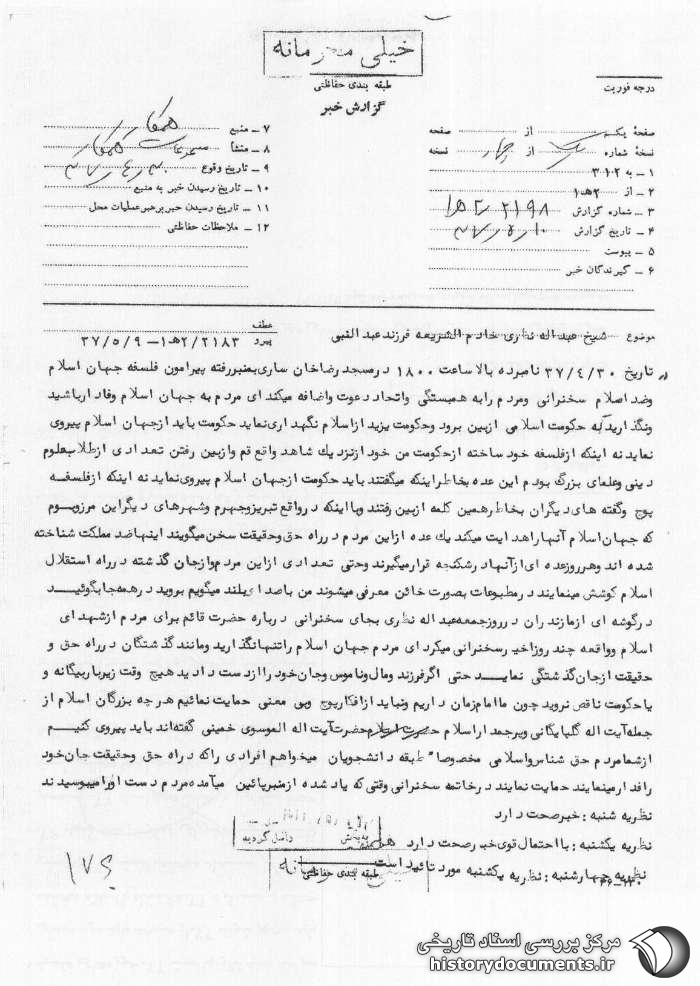 خیلی محرمانه
طبقه بندی حفاظتی
گزارش خبر
درجه فوریت
صفحهٔ یکم از صفحه
نسخهٔ شماره یک از چهار نسخه
۱ ـ به ۳۱۲
۲ ـ از ۲ه‍۱
۳ ـ شماره گزارش ۲۱۹۸/۲ه‍۱
۴ ـ تاریخ گزارش ۱۰/۵/۳۷
۵ ـ پیوست
۶ ـ گیرندگان خبر
۷ ـ منبع همکار
۸ ـ منشأ همکار
۹ ـ تاریخ وقوع ۳۰/۴/۳۷
۱۰ ـ تاریخ رسیدن خبر به منبع
۱۱ ـ تاریخ رسیدن خبر برهبر عملیات محل
۱۲ ـ ملاحظات حفاظتی
موضوع شیخ عبداله نظری خادم الشریعه فرزند عبدالنبی
عطف
پیرو ۲/۲۱۸۳ه‍۱ـ ۳۷/۵/۹
تاریخ ۳۷/۴/۳۰ نامبرده بالا ساعت ۱۸۰۰ در مسجد رضاخان ساری بمنبر رفته پیرامون فلسفه جهان اسلام
وضد اسلام سخنرانی ومردم را به همبستگی واتحاد دعوت واضافه میکند ای مردم به جهان اسلام وفادار باشید
ونگذارید که حکومت اسلامی ازبین برود وحکومت یزید از اسلام نگهداری نماید حکومت باید از جهان اسلام پیروی
نماید نه اینکه از فلسفه خود ساخته از حکومت من خود از نزدیک شاهد واقع قم وازبین رفتن تعدادی از طلاب علوم
دینی وعلمای بزرگ بودم این عده بخاطر اینکه میگفتند باید حکومت از جهان اسلام پیروی نماید نه اینکه از فلسفه
پوچ وگفته های دیگران بخاطر همین کلمه ازبین رفتند ویا اینکه در واقع تبریز وجهرم وشهرهای دیگر این مرز وبوم
که جهان اسلام آنها را هدایت میکند یک عده از این مردم در راه حق وحقیقت سخن میگویند اینها ضد مملکت شناخته
شده اند وهر روز عده ای از آنها در شکنجه قرار میگیرند وحتی تعدادی از این مردم واز جان گذشته در راه استقلال
اسلام کوشش مینمایند در مطبوعات بصورت خائن معرفی میشوند من با صدای بلند میگویم بروید در همه جا بگوئید
در گوشه ای از مازندران در روز جمعه عبداله نظری بجای سخنرانی درباره حضرت قائم برای مردم از شهدای
اسلام وواقعه چند روز اخیر سخنرانی میکرد ای مردم جهان اسلام را تنها نگذارید ومانند گذشتگان در راه حق و
حقیقت از جان گذشتگی نماید حتی اگر فرزند ومال وناموس وجان خود را از دست دادید هیچ وقت زیر بار بیگانه و
یا حکومت ناقص نروید چون ما امام زمان داریم ونباید از افکار پوچ وبی معنی حمایت نمائیم هر چه بزرگان اسلام از
جمله آیت اله گلپایگانی وپرچمدار اسلام حضرت آیت اله الموسوی خمینی گفته اند باید پیروی کنیم
از شما مردم حق شناس واسلامی مخصوصاً طبقه دانشجویان میخواهم افرادی را که در راه حق وحقیقت جان خود
را فدا مینمایند حمایت نمایند در خاتمه سخنرانی وقتی که یاد شده از منبر پائین میآمده مردم دست او را میبوسیدند
نظریه شنبه : خبر صحت دارد
نظریه یکشنبه : با احتمال قوی خبر صحت دارد
نظریه چهارشنبه : نظریه یکشنبه مورد تائید است
به بخش
داخل گردید
طبقه بندی حفاظتی
۱۷۶
مرکز بررسی اسناد تاریخی
historydocuments.ir